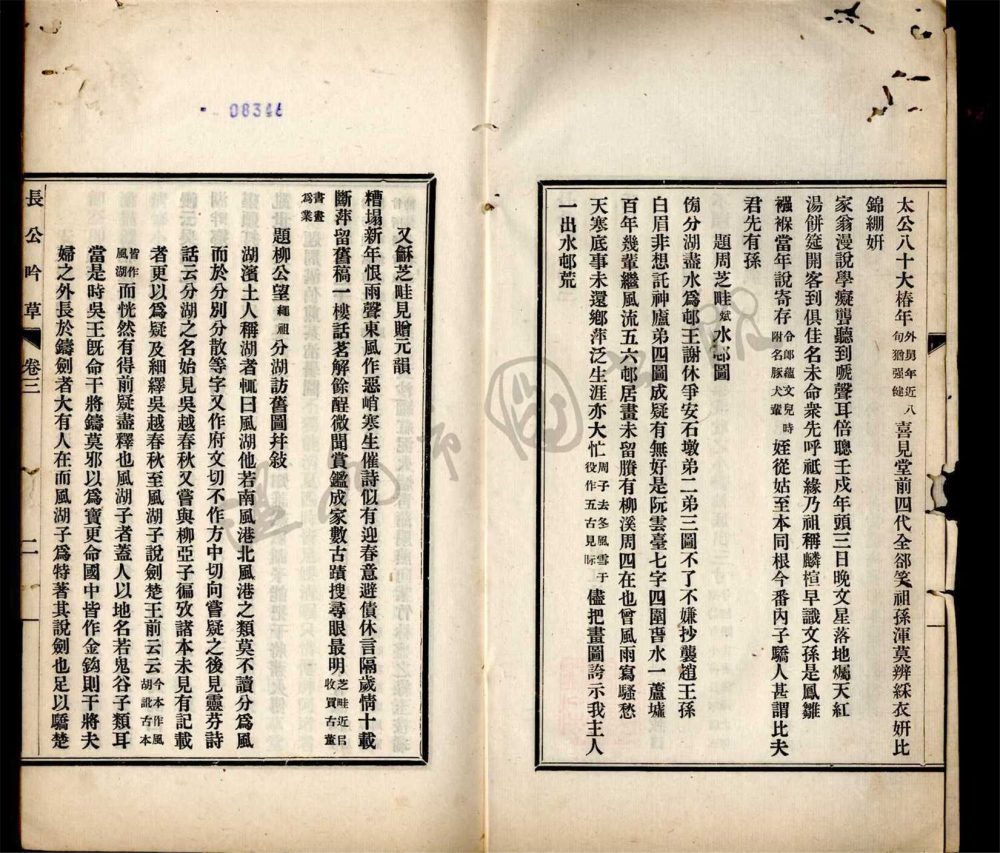 太公八十大椿年外男年近八句猶强健喜見堂前四代全郤笑祖孫渾莫辨綵衣妍比
錦綳妍
家翁漫說學癡聾聽到嗁聲耳倍聰壬戌年頭三日晚文星落地爥天紅
湯餅筵開客到俱佳名未命衆先呼祗緣乃祖稱麟楦早識文孫是鳳雛
襁褓當年說寄存令郎蘊文兒時附名豚犬輩姪從姑至本同根今番內子驕人甚謂比夫
君先有孫
題周芝畦斌水邨圖
傍分湖盡水爲邨王謝休爭安石墩弟二弟三圖不了不嫌抄襲趙王孫
白眉非想託神廬弟四圖成疑有無好是阮雲臺七字四圍春水一蘆墟
百年幾輩繼風流五六邨居畫未留賸有柳溪周四在也曾風雨寫騷愁
天寒底事未還鄉萍泛生涯亦大忙周子去冬風雪于役作五古見际儘把畫圖誇示我主人
一出水邨荒
又龢芝畦見贈元韻
糟塌新年恨雨聲東風作惡峭寒生催詩似有迎春意避債休言隔歲情十載
斷萍留舊稿一樓話茗解餘酲微聞賞鑑成家數古蹟搜尋眼最明芝畦近㠯收買古董
書畫爲業
題柳公望繩祖分湖訪舊圖幷敍
湖濱土人稱湖者輒曰風湖他若南風港北風港之類莫不讀分爲風
而於分別分散等字又作府文切不作方中切向嘗疑之後見靈芬詩
話云分湖之名始見吳越春秋又嘗與柳亞子徧攷諸本未見有記載
者更以爲疑及細繹吳越春秋至風湖子說劍楚王前云云今本作風胡訛古本
皆作風湖而恍然有得前疑盡釋也風湖子者蓋人以地名若鬼谷子類耳
當是時吳王旣命干將鑄莫邪以爲寶更命國中皆作金鉤則干將夫
婦之外長於鑄劍者大有人在而風湖子爲特著其說劍也足以驕楚
長公吟草
卷三
二
08346